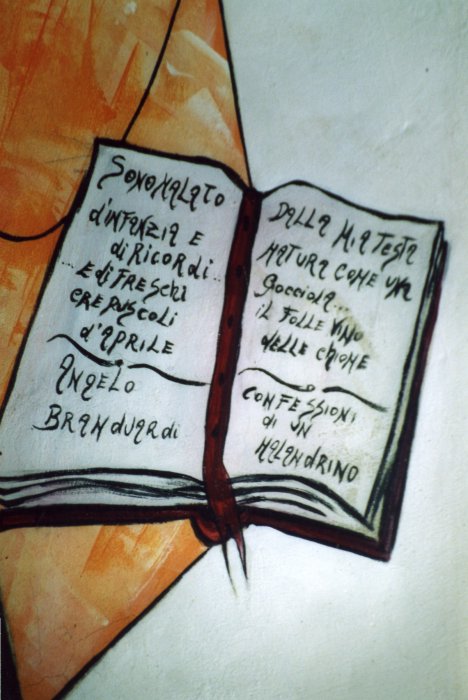 SONO MALATO
d'INFANZIA E
di RICORDI..
...E di FRESCHI
CREPUSCOLI
d'APRILE
ANGELO
BRANDUARDI
DALLA MIA TESTA
MATURA COME UNA
GOCCIOLA...
IL FOLLE VINO
DELLE CHIOME
CONFESSIONI
di UN
MALANDRINO